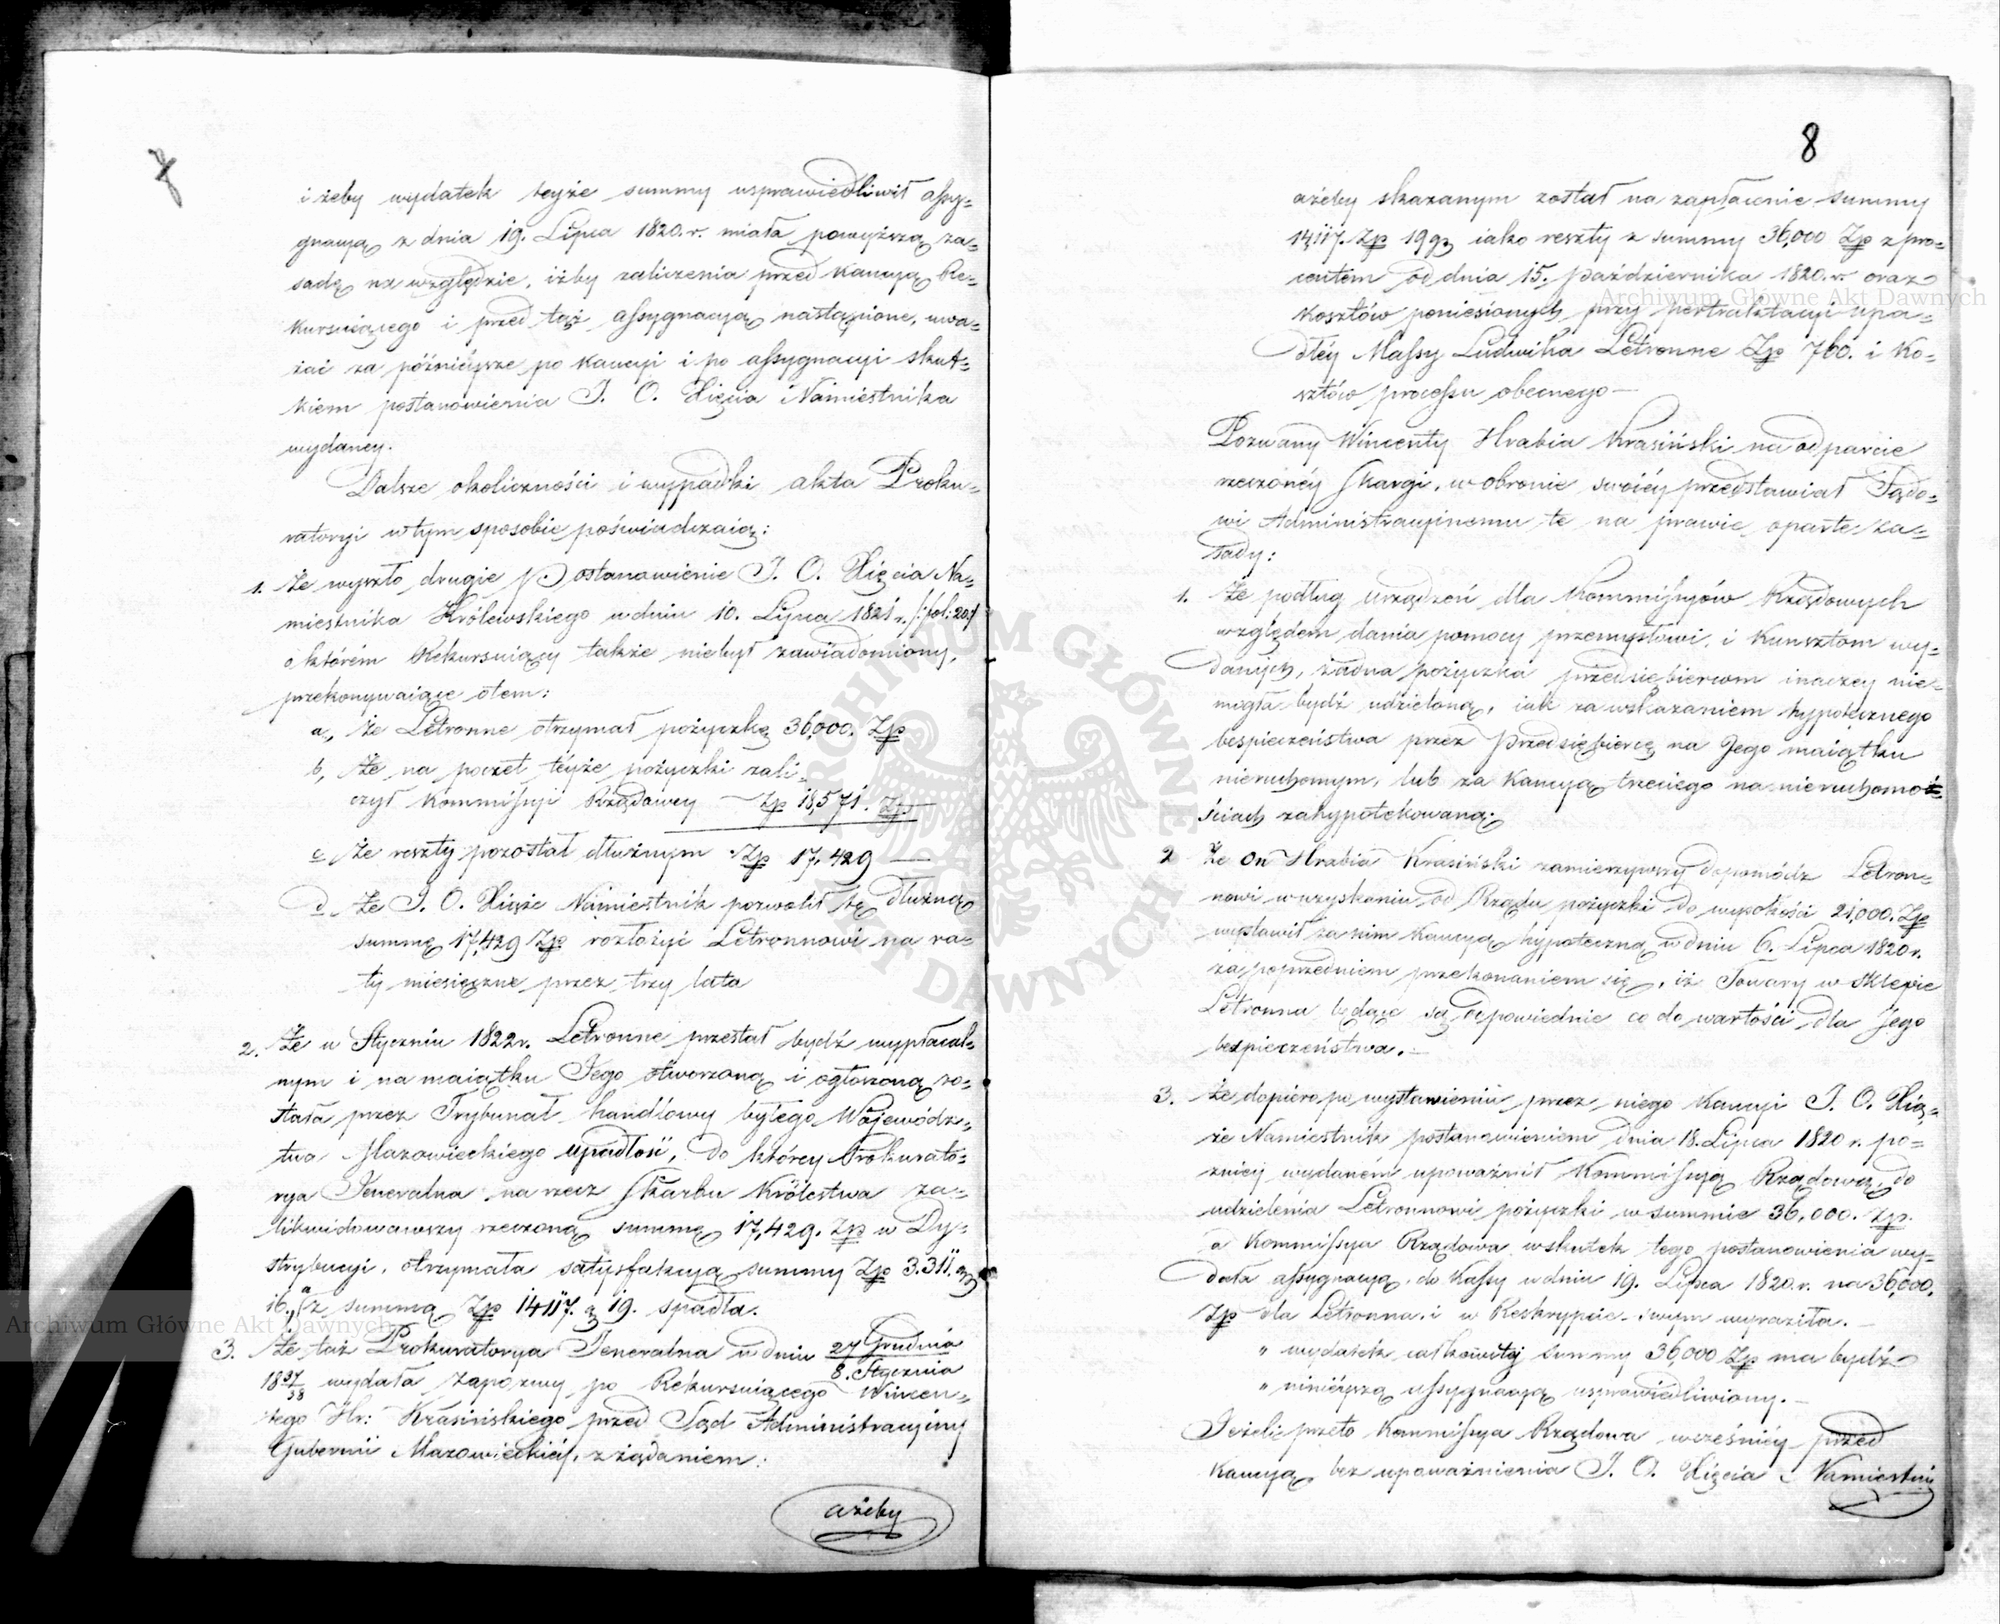 i żeby wydatek teyże summy usprawiedliwił assy=
gnacyą z dnia 19. Lipca 1820. r. miała powyższą za=
sadę na względzie, iżby zaliczenia przed Kaucyą Re=
kursuiącego i przed tąż assygnacyą nastąpione, uwa=
żać za późnieysze po Kaucyi i po assygnacyi skut=
kiem postanowienia J. O. Xięcia Namiestnika
wydaney.
Dalsze okoliczności i wypadki akta Proku=
ratoryi w tym sposobie poświadczaią:
1. Że wyszło drugie Postanowienie J. O. Xięcia Na=
miestnika Królewskiego w dniu 10. Lipca 1821 r. /:fol: 20:/
o którém Rekursuiący także niebył zawiadomiony,
przekonywaiące otem:
a, Że Letronne otrzymał pożyczkę 36,000. Zp
b, Że na poczet téyże pożyczki zali=
czył Kommissyi Rządowey — Zp 18,571. Zp
c Że reszty pozostał dłużnym Zp 17,429 —
d. Że J. O. Xiąże Namiestnik pozwolił tę dłużną
summę 17,429 Zp rozłożyć Letronnowi na ra=
ty miesięczne przez trzy lata
2. Że w Styczniu 1822 r. Letronne przestał bydź wypłacal=
nym i na maiątku Jego otworzoną i ogłoszoną zo=
stała przez Trybunał handlowy byłego Wojewódz=
twa Mazowieckiego upadłość, do którey Prokurato=
rya Jeneralna na rzecz Skarbu Królestwa za=
likwidowawszy rzeczoną summę 17,429. Zp w Dy=
strybucyi, otrzymała satysfakcyą summy Zp 3.311. g
16., a z summą Zp 14117. g 19. spadła.
3. Że taż Prokuratorya Jeneralna w dniu 27 Grudnia
8. Stycznia
1837/38 wydała zapozwy po Rekursuiącego Wincen=
tego Hr: Krasińskiego przed Sąd Administracyiny
Gubernii Mazowieckiéj, z żądaniem:
ażeby
8
ażeby skazanym został na zapłacenie summy
14,117. Zp 19 g iako reszty z summy 36,000 Zp z pro=
centem od dnia 15. Października 1820. r. oraz
kosztów poniesionych przy pertraktacyi upa=
dłéy Massy Ludwika Letronne Zp 760. i Ko=
sztów processu obecnego —
Pozwany Wincenty Hrabia Krasiński na odparcie
rzeczonéy Skargi, w obronie swoiéy przedstawiał Sądo=
wi Administracyinemu te na prawie oparte za=
sady:
1. Że podług urządzeń dla Kommissyów Rządowych
względem dania pomocy przemysłowi, i Kunsztom wy=
danych, żadna pożyczka przedsiębiercom inaczey nie=
mogła bydź udzieloną, iak za wskazaniem hypotecznego
bespieczeństwa przez Przedsiębiercę na Jego maiątku
nieruchomym, lub za Kaucyą trzeciego na nieruchomo=
ściach zahypotekowaną.
2 Że on Hrabia Krasiński zamierzywszy dopomódz Letron=
nowi w uzyskaniu od Rządu pożyczki do wysokości 21,000. Zp
wystawił za nim Kaucyą hypoteczną w dniu 6. Lipca 1820 r.
za poprzedniem przekonaniem się, iż Towary w Sklepie
Letronna będące są odpowiednie co do wartości dla Jego
bezpieczeństwa. —
3. Że dopiero po wystawieniu przez niego Kaucyi J. O. Xią=
że Namiestnik postanowieniem dnia 18. Lipca 1820 r. po=
zniéy wydaném upoważnił Kommissyą Rządową do
udzielenia Letronnowi pożyczki w summie 36,000. Zp.
a Kommissya Rządowa wskutek tego postanowienia wy=
dała assygnacyą do Kassy w dniu 19. Lipca 1820. r. na 36,000.
Zp dla Letronna, i w Reskrypcie swym wyraziła. —
„ wydatek całkowitéj summy 36,000 Zp ma bydź
„ ninieyszą assygnacyą usprawiedliwiony. —
Jeżeli przeto Kommissya Rządowa wcześniéy przed
Kaucyą bez upoważnienia J. O. Xięcia Namiestni